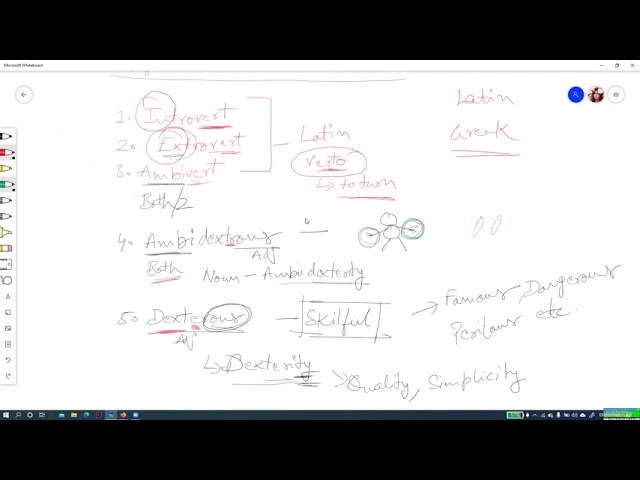 Microsoft Whiteboard
Latin
Greek
1. Introvert
2. Extrovert
3. Ambivert
Latin
verto
↳ to turn
Both/2
4. Ambidextrous —
Adj
Both
Noun - Ambidexterity
5. Dexterous — Skilful → Famous, Dangerous
Adj
Perilous etc.
↳ Dexterity
> Quality, Simplicity